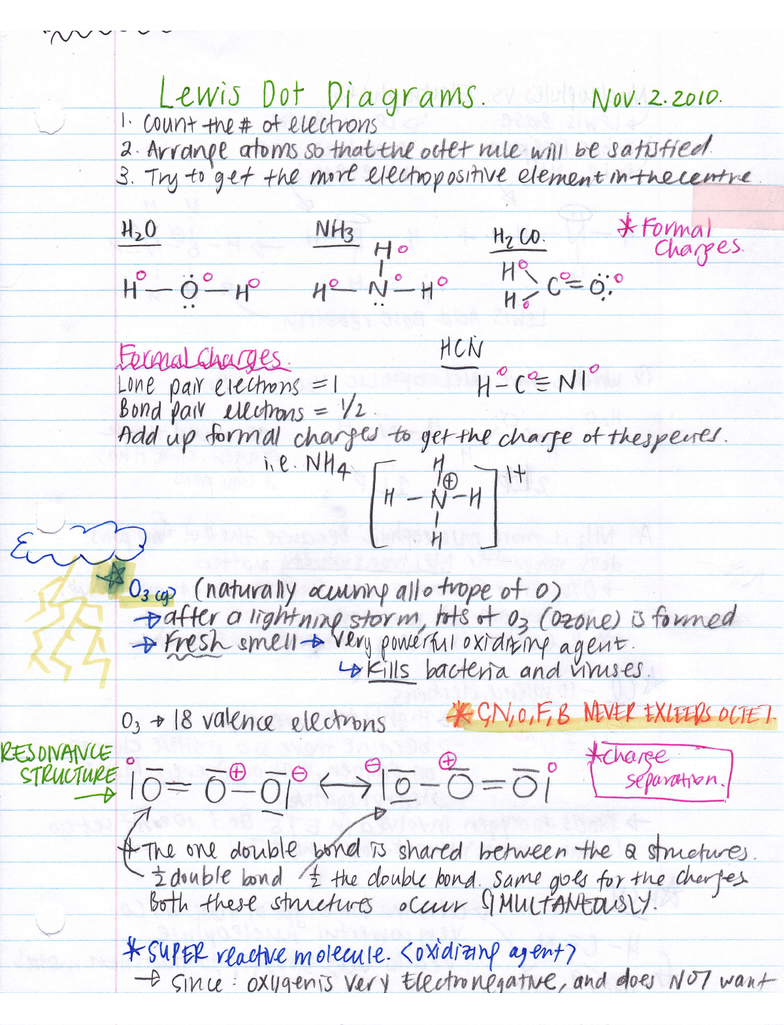 Lewis Dot Diagrams. Nov. 2. 2010.
1. Count the # of electrons
2. Arrange atoms so that the octet rule will be satisfied.
3. Try to get the more electropositive element in the centre
H₂O NH₃ H₂CO. * Formal Charges.
H° — Ö° — H° H° — N° — H° H° C° = O°
H° H°
Formal Charges. HCN
Lone pair electrons = 1 H° — C° ≡ N|°
Bond pair electrons = 1/2.
Add up formal charges to get the charge of the species.
i.e. NH₄ [H — N⊕ — H]¹⁺
H H
O₃ (g) (naturally occuring allotrope of O)
→ after a lightning storm, lots of O₃ (Ozone) is formed
→ Fresh smell → Very powerful oxidizing agent.
↳ Kills bacteria and viruses.
O₃ → 18 valence electrons * C,N,O,F,B NEVER EXCEEDS OCTET.
RESONANCE STRUCTURE → |O° = O⊕ — O|⊖ ↔ ⊖|O — O⊕ = O|° * Charge separation.
* The one double bond is shared between the 2 structures.
½ double bond ½ the double bond. Same goes for the charges
Both these structures occur SIMULTANEOUSLY
* SUPER reactive molecule. <oxidizing agent>
→ Since: oxygen is very Electronegative, and does NOT want